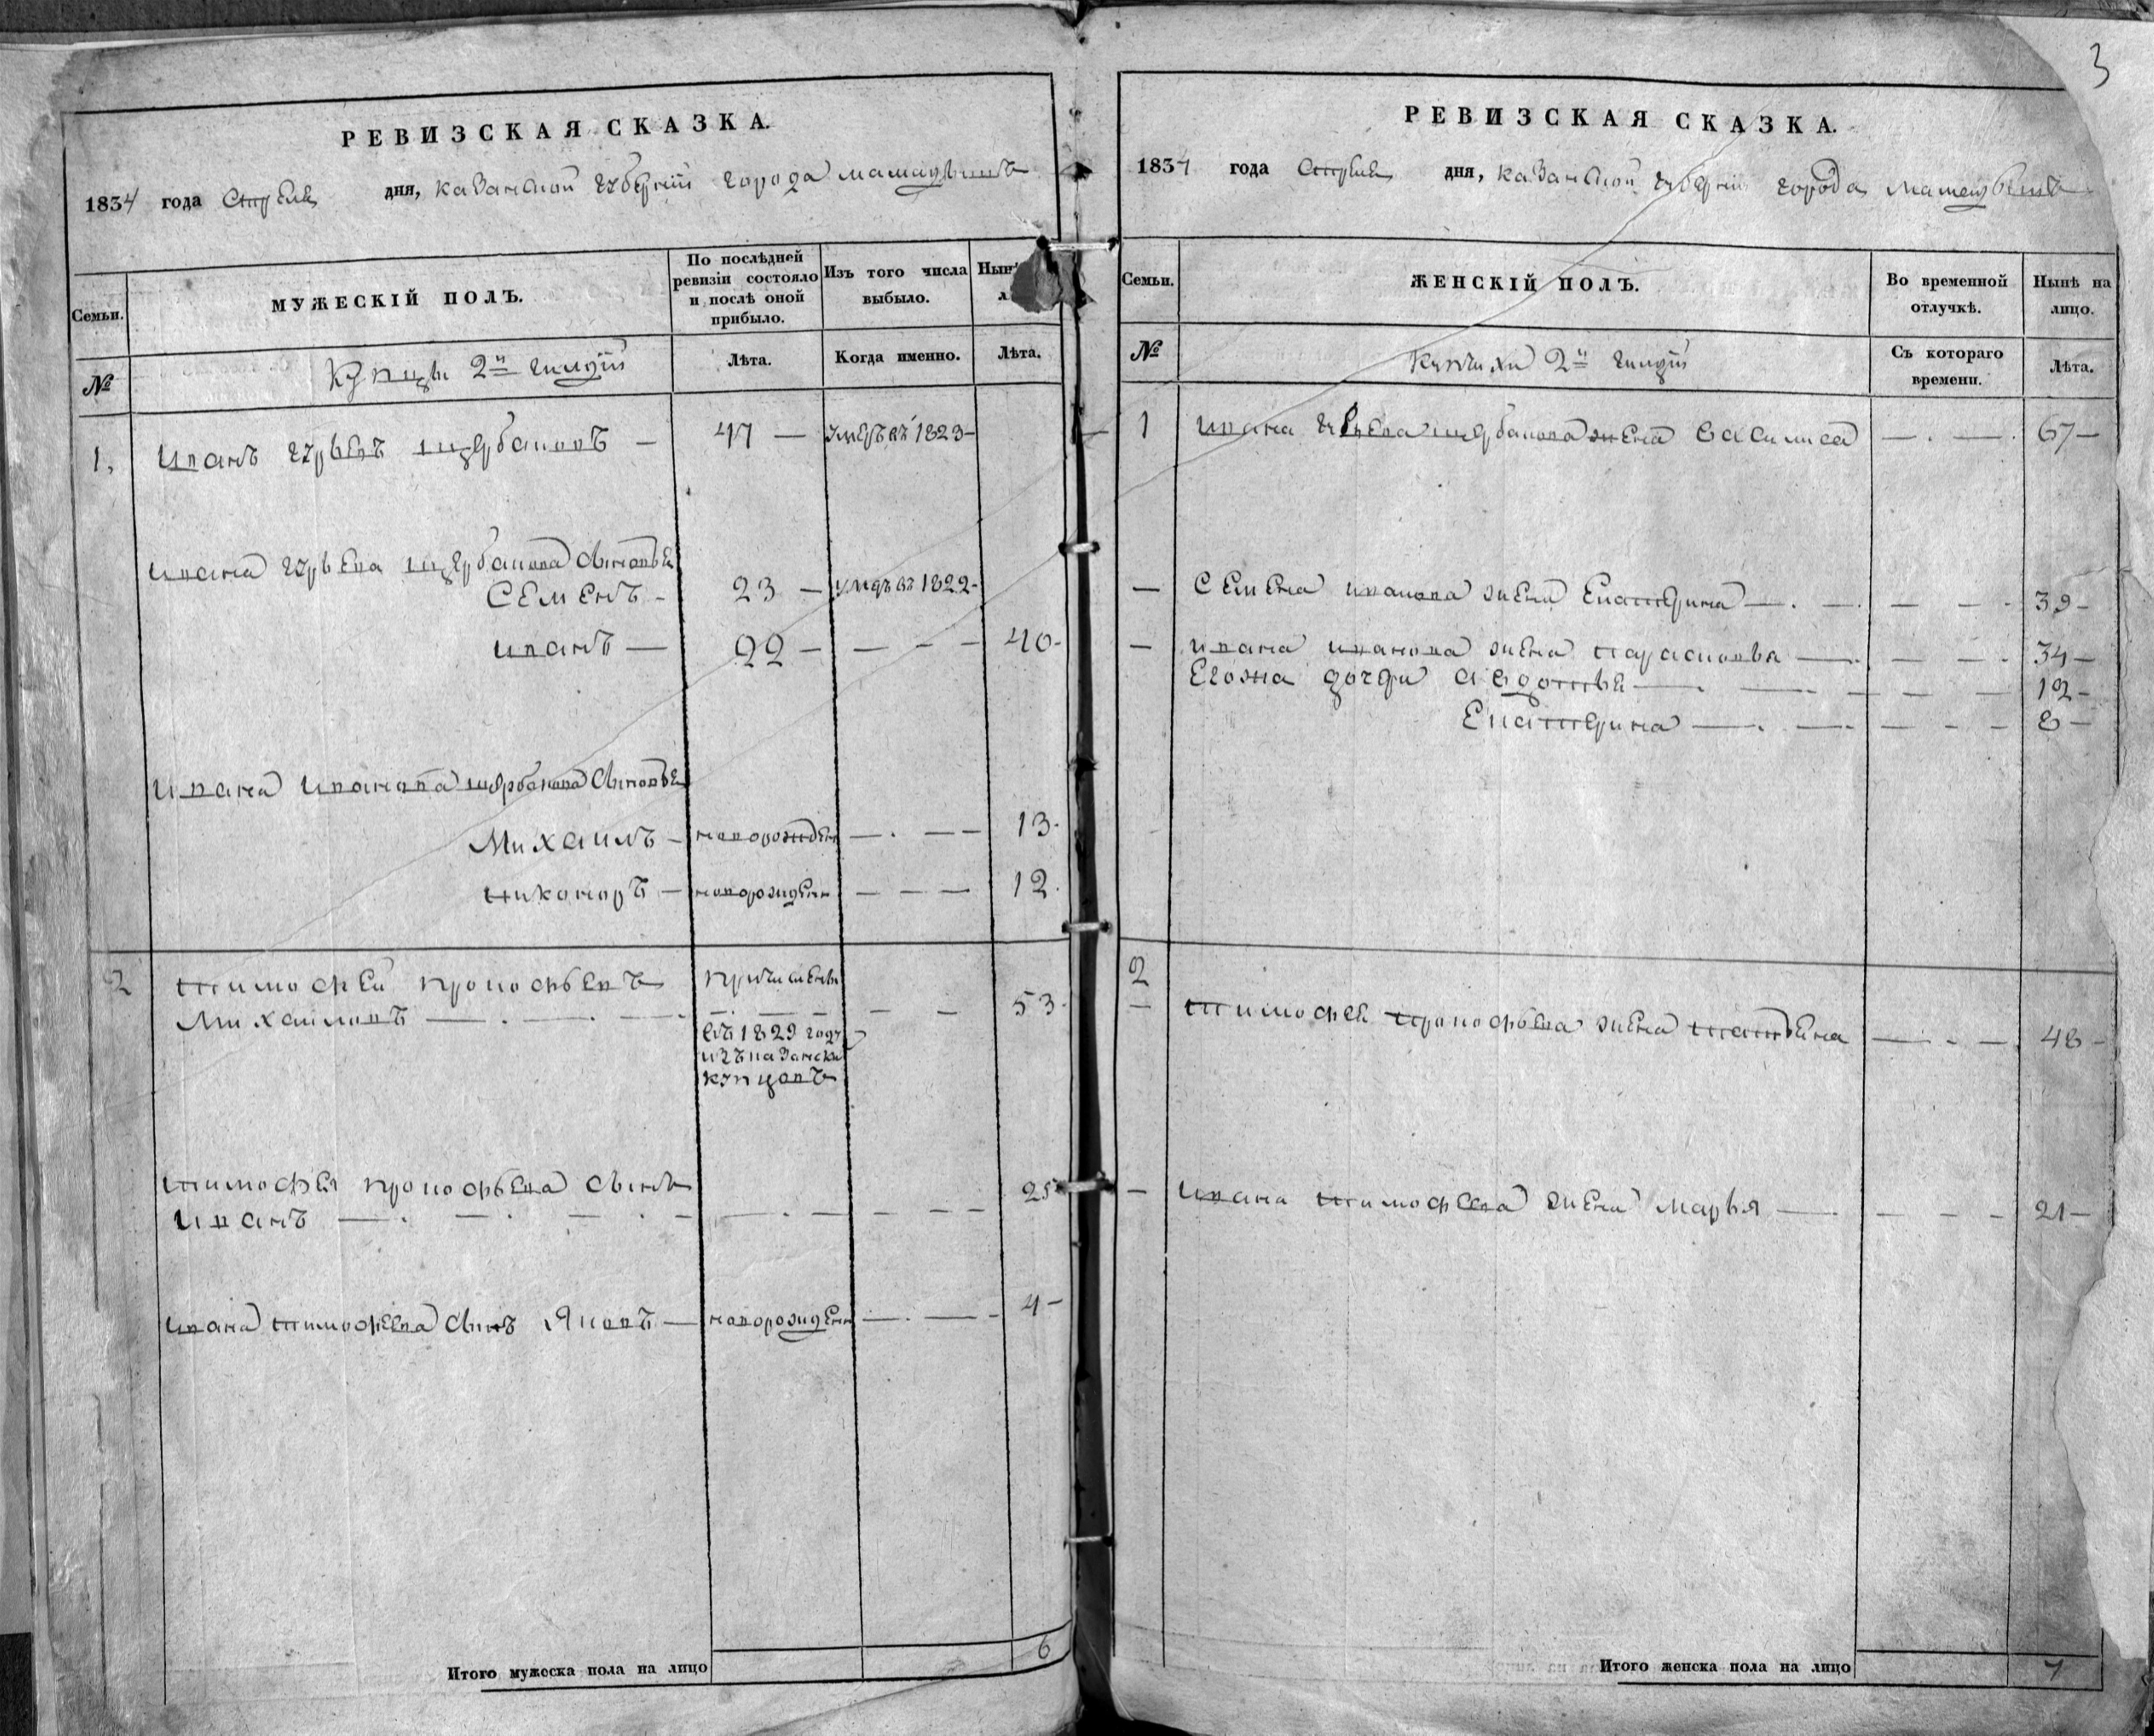 РЕВИЗСКАЯ СКАЗКА.
1834 года Апреля дня, казанской губернии города мамадышъ
Семьи.
МУЖЕСКІЙ ПОЛЪ.
По послѣдней ревизіи состояло и послѣ оной прибыло.
Изъ того числа выбыло.
Нынѣ л
№
Купцы 2й гилдіи
Лѣта.
Когда именно.
Лѣта.
1, Иванъ гурьевъ щербаковъ — 47 — умеръ въ 1823 —
Ивана гурьева щербакова сыновья
Семенъ — 23 — умеръ въ 1822 —
иванъ — 22 — — — — 40 —
Ивана Иванова щербакова сыновья
Михаилъ — новорожден — — — 13
никоноръ — новорожден — — — 12
2 тимофей прокофьевъ причислены
Михаиловъ — — — 53
въ 1829 году
изъ казански
купцовъ
тимофея прокофьева сынъ
иванъ — — — 25
ивана тимофеева сынъ Яковъ — новорожден — — — 4 —
Итого мужеска пола на лицо 6
3
РЕВИЗСКАЯ СКАЗКА.
1834 года Апреля дня, казанской губерніи города мамадышъ
Семьи.
ЖЕНСКІЙ ПОЛЪ.
Во временной отлучкѣ.
Нынѣ на лицо.
№
Купчихи 2й гилдіи
Съ котораго времени.
Лѣта.
1 ивана гурьева щербакова жена василиса — — 67 —
— Семена иванова жена Екатерина — — — 39 —
— ивана иванова жена парасковья — — — 34 —
Егожа дочери авдотья — — — 12 —
Екатерина — — — 8 —
2
— тимофея прокофьева жена татьяна — — — 48 —
— ивана тимофеева жена марья — — — 21 —
Итого женска пола на лицо 7